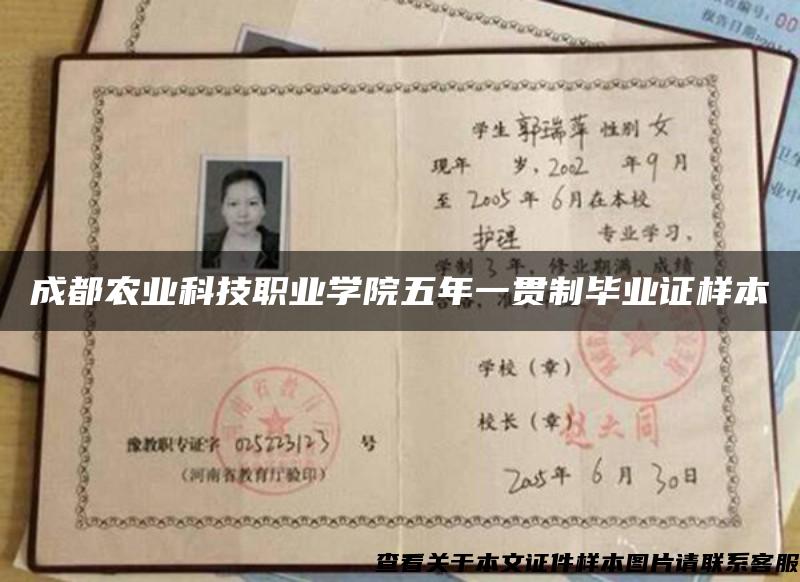 告编号：00
报告日期
学生 郭瑞萍 性别 女
现年 岁，2002 年 9 月
至 2005 年 6 月在本校
护理 专业学习，
学制 3 年，修业期满，成绩
成都农业科技职业学院五年一贯制毕业证样本
学校（章）
校长（章）赵大同
豫教职专证字 025223123 号
（河南省教育厅验印）
2005 年 6 月 30 日
查看关于本文证件样本图片请联系客服